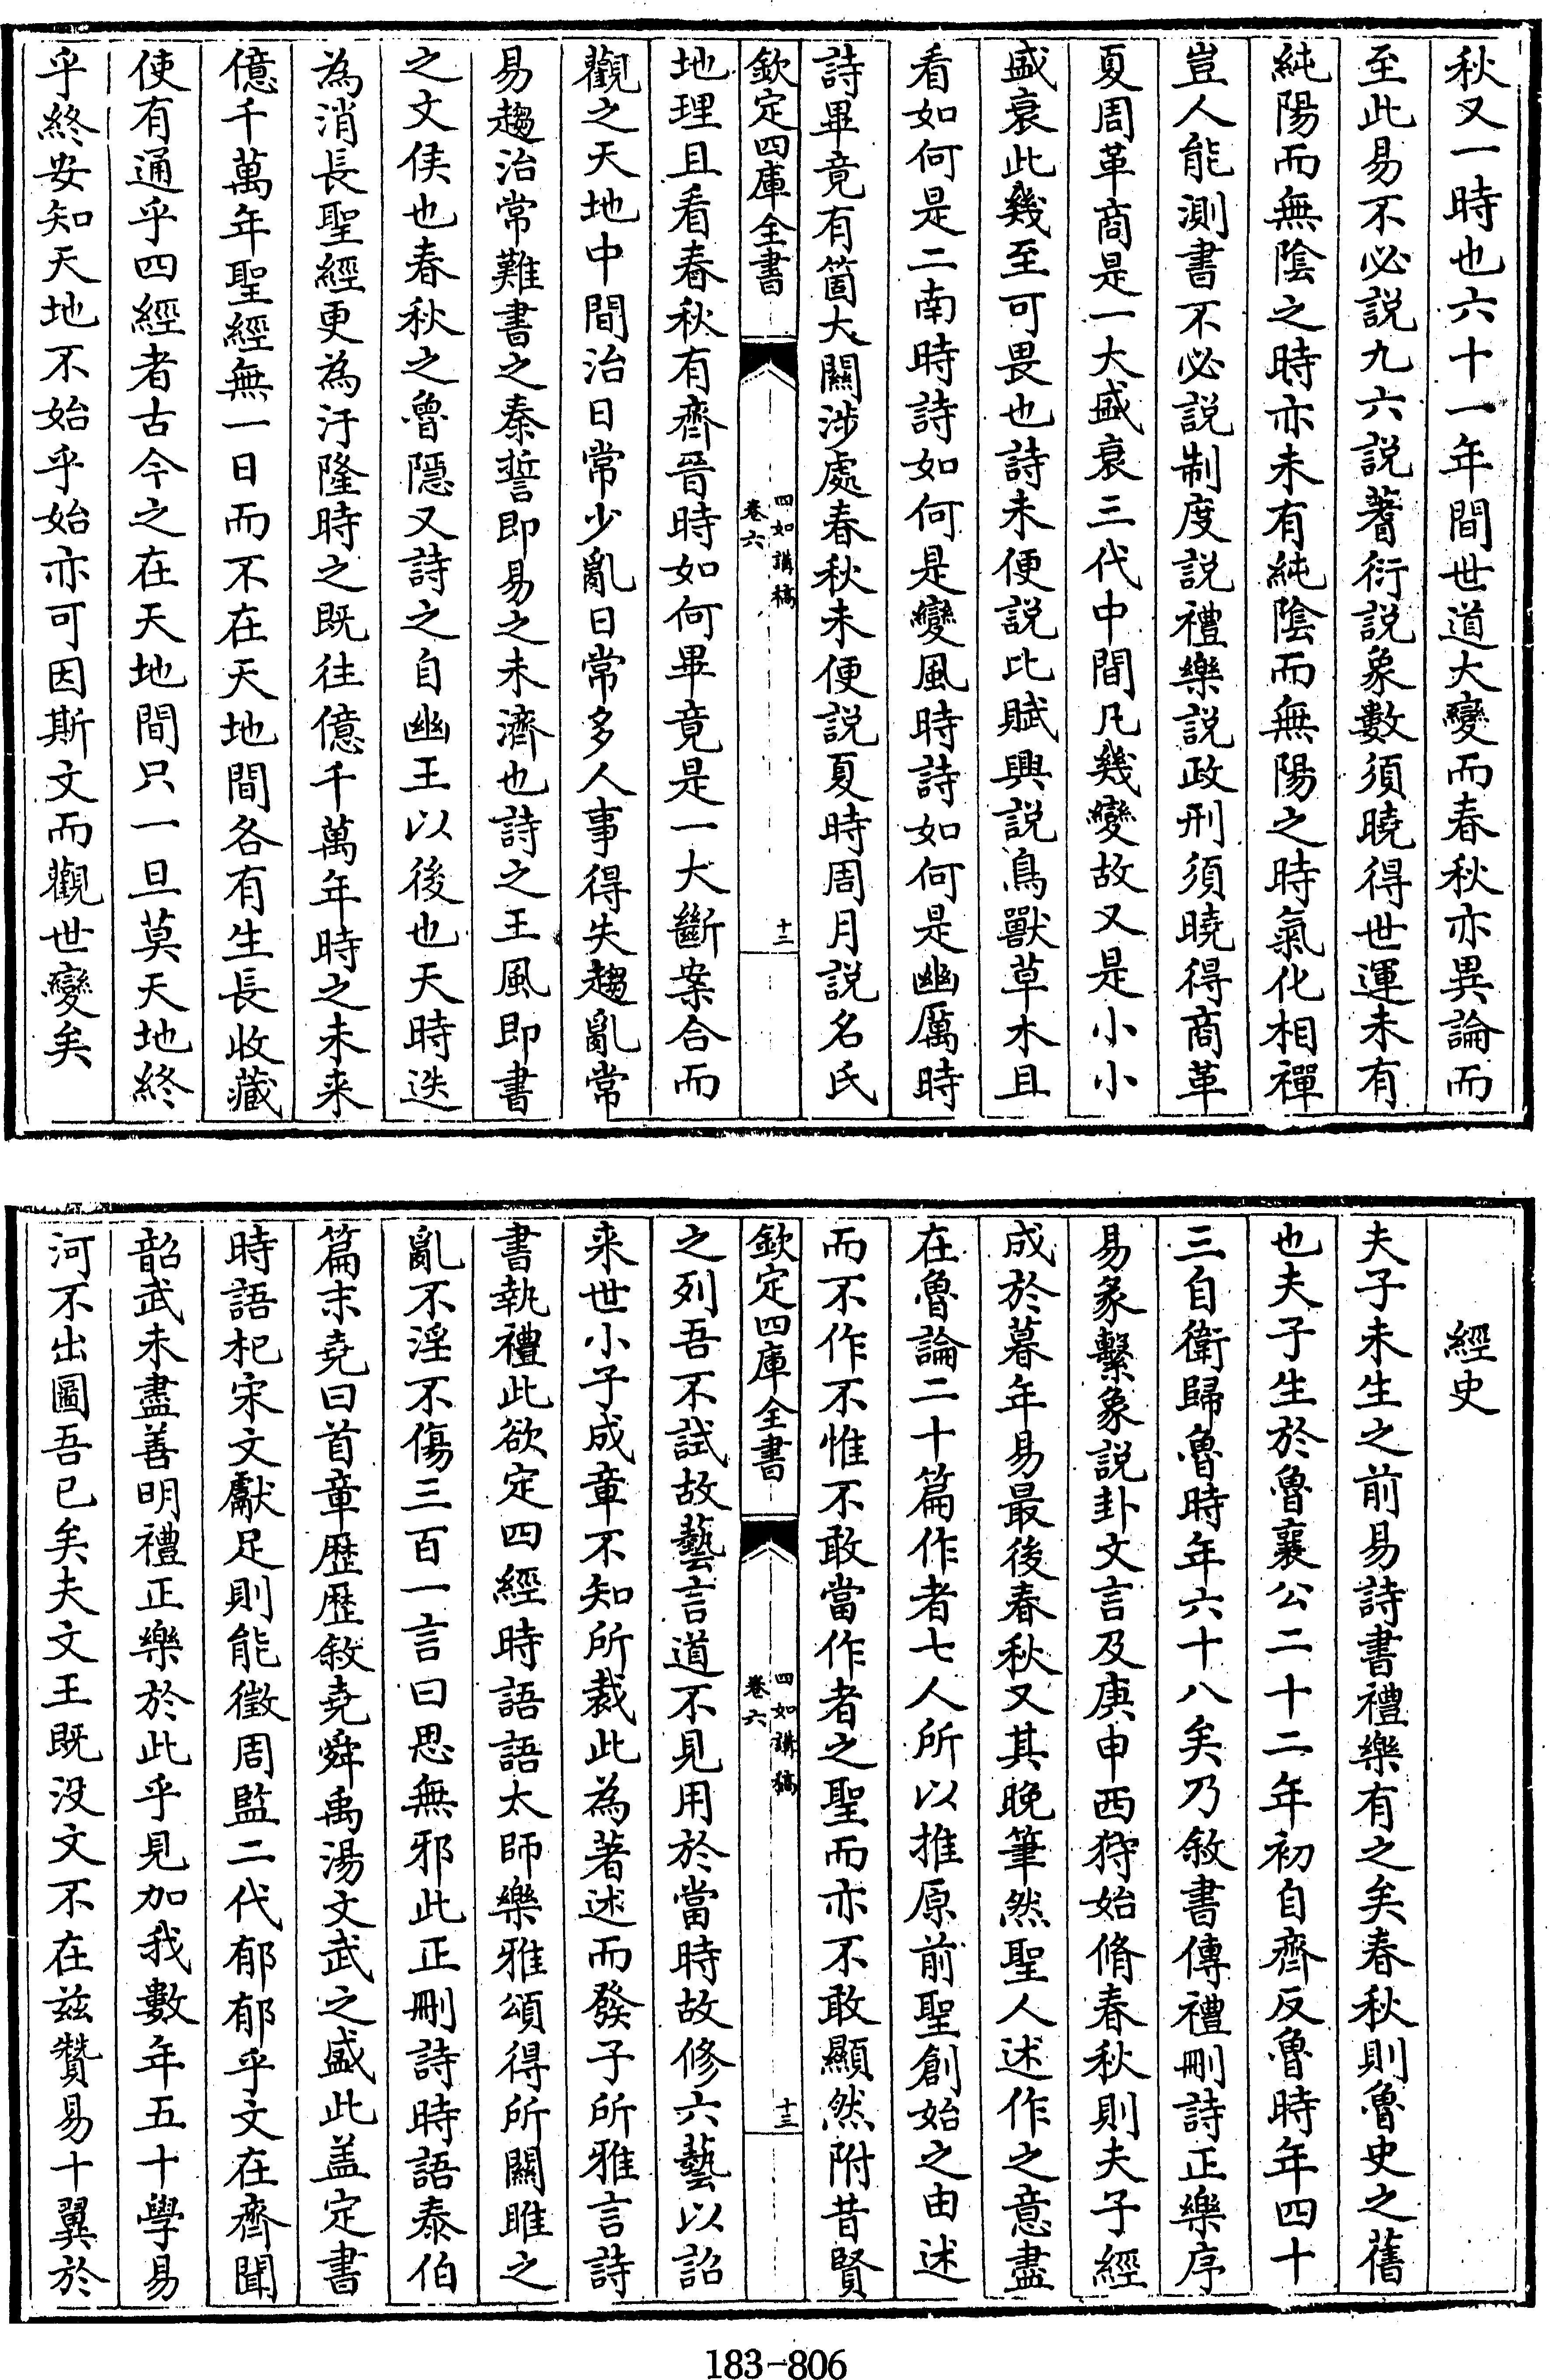 秋又一時也六十一年間世道大變而春秋亦異論而
至此易不必説九六説蓍衍説象數須曉得世運未有
純陽而無陰之時亦未有純陰而無陽之時氣化相禪
豈人能測書不必説制度説禮樂説政刑須曉得商革
夏周革商是一大盛衰三代中間凡幾變故又是小小
盛衰此幾至可畏也詩未便説比賦興説鳥獸草木且
看如何是二南時詩如何是變風時詩如何是幽厲時
詩畢竟有箇大關涉處春秋未便説夏時周月説名氏
欽定四庫全書
四如講稿
卷六
十二
地理且看春秋有齊晉時如何畢竟是一大斷案合而
觀之天地中間治日常少亂日常多人事得失趨亂常
易趨治常難書之秦誓即易之未濟也詩之王風即書
之文侯也春秋之魯隱又詩之自幽王以後也天時迭
為消長聖經更為汙隆時之既往億千萬年時之未来
億千萬年聖經無一日而不在天地間各有生長收藏
使有通乎四經者古今之在天地間只一旦莫天地終
乎終安知天地不始乎始亦可因斯文而觀世變矣
經史
夫子未生之前易詩書禮樂有之矣春秋則魯史之舊
也夫子生於魯襄公二十二年初自齊反魯時年四十
三自衛歸魯時年六十八矣乃敘書傳禮刪詩正樂序
易彖繫象説卦文言及庚申西狩始脩春秋則夫子經
成於暮年易最後春秋又其晚筆然聖人述作之意盡
在魯論二十篇作者七人所以推原前聖創始之由述
而不作不惟不敢當作者之聖而亦不敢顯然附昔賢
欽定四庫全書
四如講稿
卷六
十三
之列吾不試故藝言道不見用於當時故修六藝以詔
来世小子成章不知所裁此為著述而發子所雅言詩
書執禮此欲定四經時語語太師樂雅頌得所關雎之
亂不淫不傷三百一言曰思無邪此正刪詩時語泰伯
篇末堯曰首章歷歷敘堯舜禹湯文武之盛此盖定書
時語杞宋文獻足則能徵周監二代郁郁乎文在齊聞
韶武未盡善明禮正樂於此乎見加我數年五十學易
河不出圖吾已矣夫文王既没文不在兹贊易十翼於
183-806